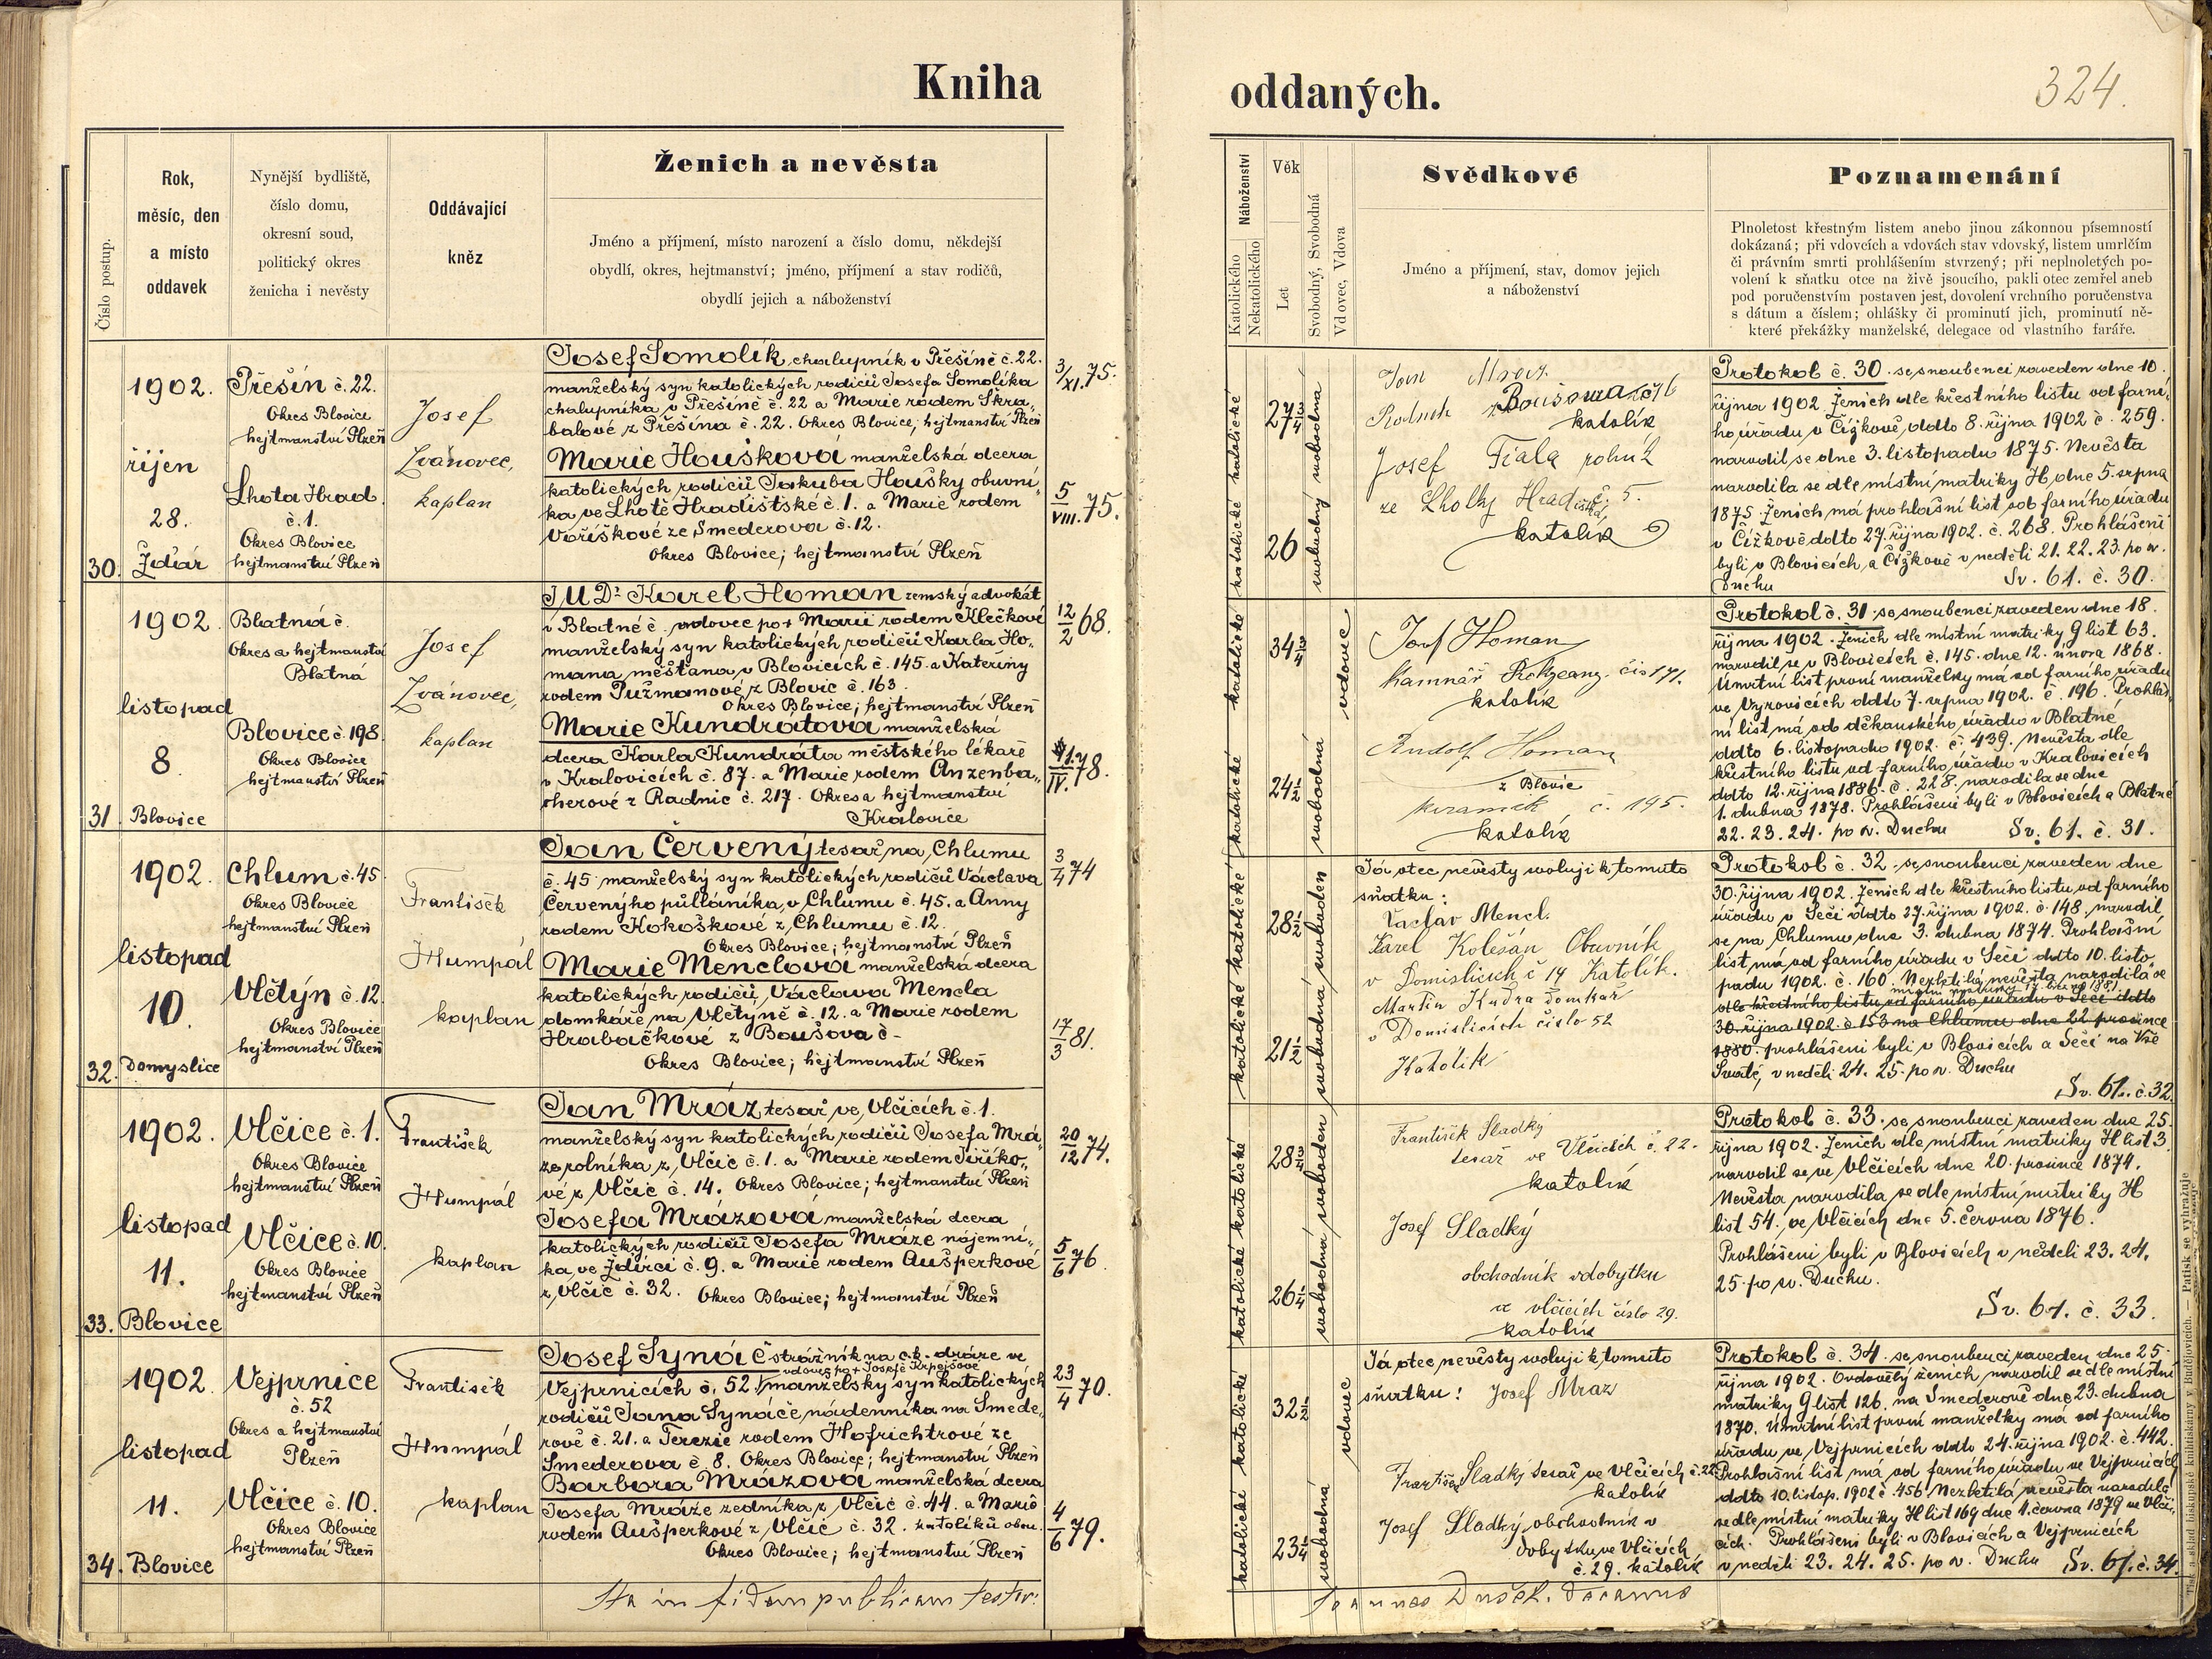 Kniha
oddaných.
324.
Číslo postup.
Rok,
měsíc, den
a místo
oddavek
Nynější bydliště,
číslo domu,
okresní soud,
politický okres
ženicha i nevěsty
Oddávající
kněz
Ženich a nevěsta
Jméno a příjmení, místo narození a číslo domu, někdejší
obydlí, okres, hejtmanství; jméno, příjmení a stav rodičů,
obydlí jejich a náboženství
Náboženství
Katolického
Nekatolického
Věk
Let
Svobodný, Svobodná
Vdovec, Vdova
Svědkové
Jméno a příjmení, stav, domov jejich
a náboženství
Poznamenání
Plnoletost křestným listem anebo jinou zákonnou písemností
dokázaná; při vdovcích a vdovách stav vdovský, listem umrlčím
či právním smrti prohlášením stvrzený; při neplnoletých po-
volení k sňatku otce na živě jsoucího, pakli otec zemřel aneb
pod poručenstvím postaven jest, dovolení vrchního poručenstva
s dátum a číslem; ohlášky či prominutí jich, prominutí ně-
které překážky manželské, delegace od vlastního faráře.
30.
1902.
říjen
28.
Žďiár
Přešín č. 22.
Okres Blovice
hejtmanství Plzeň
Lhota Hrad.
č. 1.
Okres Blovice
hejtmanství Plzeň
Josef
Zvánovec,
kaplan
Josef Somolík, chalupník v Přešíně č. 22.
manželský syn katolických rodičů Josefa Somolíka
chalupníka v Přešíně č. 22 a Marie rodem Škra„
balové z Přešína č. 22. Okres Blovice; hejtmanství Plzeň
Marie Houšková manželská dcera
katolických rodičů Jakuba Houšky obuvní„
ka ve Lhotě Hradištské č. 1. a Marie rodem
Voříškové ze Smederova č. 12.
Okres Blovice; hejtmanství Plzeň
3/XI. 75.
5/VIII. 75.
katolické katolické
27 3/4
26
svobodný svobodná
Jan Mraz
Boušova č 16
katolík
Josef Fiala rolník
ze Lhotky Hradištská č. 5.
katolík
Protokol č. 30. se snoubenci zaveden dne 10.
října 1902. Ženich dle křestního listu od farní„
ho úřadu v Čížkově, ddto 8. října 1902 č. 259.
narodil se dne 3. listopadu 1875. Nevěsta
narodila se dle místní matriky H, dne 5. srpna
1875. Ženich má prohlašní list od farního úřadu
v Čížkově ddto 27. října 1902. č. 268. Prohlášeni
byli v Blovicích a Čížkově v neděli 21. 22. 23. po sv.
Duchu Sv. 61. č. 30.
31.
1902.
listopad
8.
Blovice
Blatná č.
Okres a hejtmanství
Blatná
Blovice č. 198.
Okres Blovice
hejtmanství Plzeň
Josef
Zvánovec,
kaplan
JUDr. Karel Homan zemský advokát
v Blatné č. vdovec po + Marii rodem Klečkové
manželský syn katolických rodičů Karla Ho„
mana měšťana v Blovicích č. 145. a Kateřiny
rodem Pužmanové z Blovic č. 163.
Okres Blovice; hejtmanství Plzeň
Marie Kundrátova manželská
dcera Karla Kundráta městského lékaře
v Kralovicích č. 87. a Marie rodem Anzenba„
cherové z Radnic č. 217. Okres a hejtmanství
Kralovice
12/2 68.
1/IV. 78.
katolické katolické
34 3/4
24 1/2
vdovec svobodná
Josef Homan
kamnář Rokycany čís 171.
katolík
Rudolf Homan
z Blovic
č. 195.
katolík
Protokol č. 31. se snoubenci zaveden dne 18.
října 1902. Ženich dle místní matriky G list 63.
narodil se v Blovicích č. 145. dne 12. února 1868.
Úmrtní list první manželky má od farního úřadu
ve Vyrovicích ddto 7. srpna 1902. č. 196. Prohláš„
ní list má od děkanského úřadu v Blatné
ddto 6. listopadu 1902. č. 439. Nevěsta dle
křestního listu od farního úřadu v Kralovicích
ddto 12. října 1886. č. 228. narodila se dne
1. dubna 1878. Prohlášeni byli v Blovicích a Blatné
22. 23. 24. po sv. Duchu Sv. 61. č. 31.
32.
1902.
listopad
10.
Domyslice
Chlum č. 45.
Okres Blovice
hejtmanství Plzeň
Vlčtýn č. 12.
Okres Blovice
hejtmanství Plzeň
František
Humpál
kaplan
Jan Červený tesař na Chlumu
č. 45. manželský syn katolických rodičů Václava
Červenýho půllánika, v Chlumu č. 45. a Anny
rodem Kokoškové z Chlumu č. 12.
Okres Blovice; hejtmanství Plzeň
Marie Menclová manželská dcera
katolických rodičů Václava Mencla
domkáře na Vlčtýně č. 12. a Marie rodem
Hrabačkové z Boušova č -
Okres Blovice; hejtmanství Plzeň
3/4 74
17/3 81.
katolické katolické
28 1/2
21 1/2
svobodná svoboden
Já otec nevěsty svoluji k tomuto
sňatku:
Vaclav Mencl.
Karel Kolesán Obuvník
v Domislicich č 14 Katolík.
Martin Kudra domkář
v Domislicich číslo 52
Katolík
Protokol č. 32. se snoubenci zaveden dne
30. října 1902. Ženich dle křestního listu od farního
úřadu v Seči ddto 27. října 1902. č. 148. narodil
se na Chlumu dne 3. dubna 1874. Prohlašní
list má od farního úřadu v Seči ddto 10. listo„
padu 1902. č. 160. Nezletilá nevěsta narodila se
dle křestního listu od farního úřadu v Seči ddto
30. října 1902. č. 153 na Chlumu dne 22. prosince
1880. prohlášeni byli v Blovicích a Seči na Vše
Svaté, v neděli 24. 25. po sv. Duchu
Sv. 61. č. 32.
33.
1902.
listopad
11.
Blovice
Vlčice č. 1.
Okres Blovice
hejtmanství Plzeň
Vlčice č. 10.
Okres Blovice
hejtmanství Plzeň
František
Humpál
kaplan
Jan Mráz tesař ve Vlčicích č. 1.
manželský syn katolických rodičů Josefa Mrá„
ze rolníka z Vlčic č. 1. a Marie rodem Jiříko„
vé z Vlčic č. 14. Okres Blovice; hejtmanství Plzeň
Josefa Mrázová manželská dcera
katolických rodičů Josefa Mráze nájemní„
ka, ve Ždírci č. 9. a Marie rodem Aušperkové
z Vlčic č. 32. Okres Blovice; hejtmanství Plzeň
20/12 74.
5/6 76.
katolické katolické
28 3/4
26 1/4
svobodná svoboden
František Sladký
tesař ve Vlčicích č. 22.
katolík
Josef Sladký
obchodník vdobytku
ve vlčicích číslo 29.
katolík
Protokol č. 33. se snoubenci zaveden dne 25.
října 1902. Ženich dle místní matriky H list 3.
narodil se ve Vlčicích dne 20. prosince 1874.
Nevěsta narodila se dle místní matriky H
list 54. ve Vlčicích dne 5. června 1876.
Prohlášeni byli v Blovicích v neděli 23. 24.
25. po sv. Duchu.
Sv. 61. č. 33.
34.
1902.
listopad
11.
Blovice
Vejprnice
č. 52
Okres a hejtmanství
Plzeň
Vlčice č. 10.
Okres Blovice
hejtmanství Plzeň
František
Humpál
kaplan
Josef Synáč strážník na c. k. dráze ve
vdovec po + Josefě Krpejšové
Vejprnicích č. 52. manželský syn katolických
rodičů Jana Synáče, nádenníka na Smede„
rově č. 21. a Terezie rodem Hofrichtrové ze
Smederova č. 8. Okres Blovice; hejtmanství Plzeň
Barbora Mrázova manželská dcera
Josefa Mráze zedníka z Vlčic č. 44. a Marie
rodem Aušperkové z Vlčic č. 32. katolíků obou.
Okres Blovice; hejtmanství Plzeň
23/4 70.
4/6 79.
katolické katolické
32 1/2
23 1/4
vdovec svobodná
Já otec nevěsty svoluji k tomuto
sňatku: Josef Mraz
František Sladký tesař ve Vlčicích č. 22
katolík
Josef Sladký, obchodník v
dobytku ve Vlčicích
č. 29. katolík
Protokol č. 34. se snoubenci zaveden dne 25.
října 1902. Ovdovělý ženich narodil se dle místní
matriky G list 126. na Smederově dne 23. dubna
1870. Úmrtní list první manželky má od farního
úřadu ve Vejprnicích ddto 24. října 1902. č. 442.
Prohlašní list má od farního úřadu ve Vejprnicích
ddto 10. listop. 1902 č. 456. Nezletilá nevěsta narodila
se dle místní matriky H list 169 dne 4. června 1879 ve Vlči„
cích. Prohlášeni byli v Blovicích a Vejprnicích
v neděli 23. 24. 25. po sv. Duchu Sv. 61. č. 34.
Ita in fidem publicam testor:
Joannes Dušek. decanus